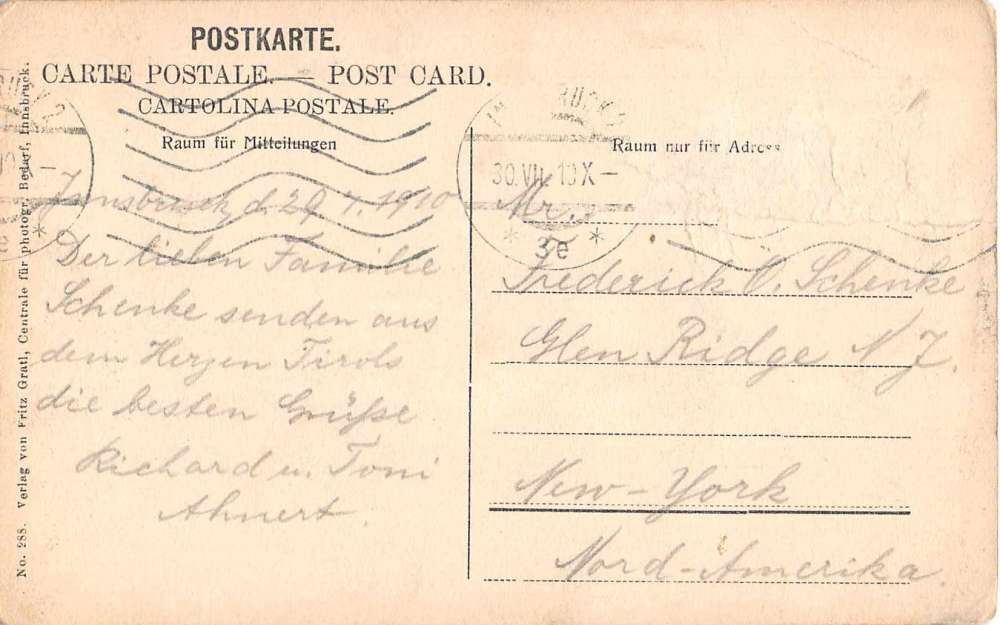 POSTKARTE.
CARTE POSTALE. — POST CARD.
CARTOLINA POSTALE.
Raum für Mitteilungen
Innsbruck, d. 29. 7. 1910
Der lieben Familie
Schenke senden aus
dem Herzen Tirols
die besten Grüße
Richard u. Toni
Ahnert.
Raum nur für Adresse
30.VII.10 X—
* 3e *
Mr.
Frederick O. Schenke
Glen Ridge N J.
New-York
Nord-Amerika.
No. 288. Verlag von Fritz Gratl, Centrale für photogr. Bedarf, Innsbruck.